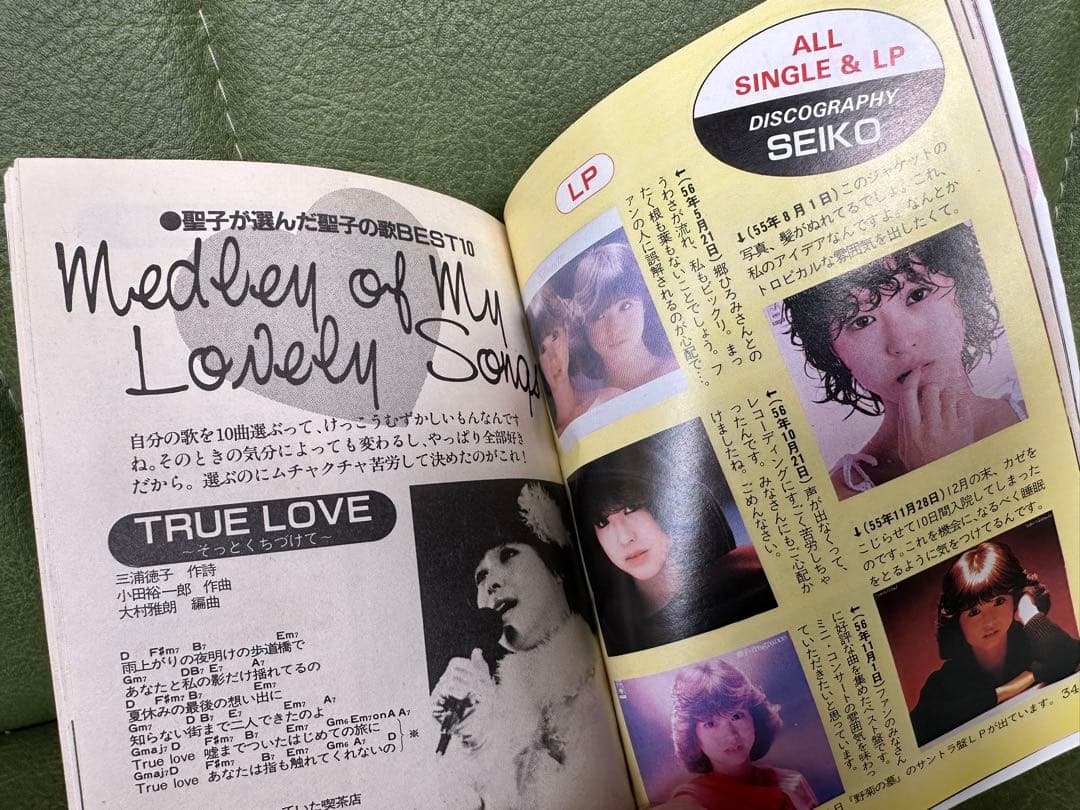 ●聖子が選んだ聖子の歌BEST10
Medley of My
Lovely Songs
自分の歌を10曲選ぶって、けっこうむずかしいもんなんです
ね。そのときの気分によっても変わるし、やっぱり全部好き
だから。選ぶのにムチャクチャ苦労して決めたのがこれ!
TRUE LOVE
〜そっとくちづけて〜
三浦徳子 作詩
小田裕一郎 作曲
大村雅朗 編曲
D F♯m7 B7 Em7
雨上がりの夜明けの歩道橋で
Gm7 DB7 E7 A7
あなたと私の影だけ揺れてるの
D F♯m7 B7 Em7
夏休みの最後の想い出に
Gm7 D B7 E7 Em7 A7
知らない街まで二人できたのよ
Gmaj7 D F♯m7 B7 Em7 Gm6 Em7onA A7
True love 嘘までついたはじめての旅に
Gmaj7 D F♯m7 B7 Em7 Gm6 A7 D
True love あなたは指も触れてくれないの
※
ていた喫茶店
ALL
SINGLE & LP
DISCOGRAPHY
SEIKO
LP
↓(55年8月1日)このジャケットの
写真、髪がぬれてるでしょ。これ、
私のアイデアなんですよ。なんとか
トロピカルな雰囲気を出したくて。
←(56年5月21日)郷ひろみさんとの
うわさが流れ、私もビックリ。まっ
たく根も葉もないことでしょう。フ
ァンの人に誤解されるのが心配で…。
↓(55年11月28日)12月の末、カゼを
こじらせて10日間入院してしまった
のです。これを機会に、なるべく睡眠
をとるように気をつけてるんです。
←(56年10月21日)声が出なくって、
レコーディングにすごく苦労しちゃ
ったんです。みなさんにもご心配か
けましたね。ごめんなさい。
←(56年11月1日)ファンのみなさん
に好評な曲を集めたベスト盤です。
ミニ・コンサートの雰囲気を味わっ
ていただきたいと思っています。
日『野菊の墓』のサントラ盤LPが出ています。
34